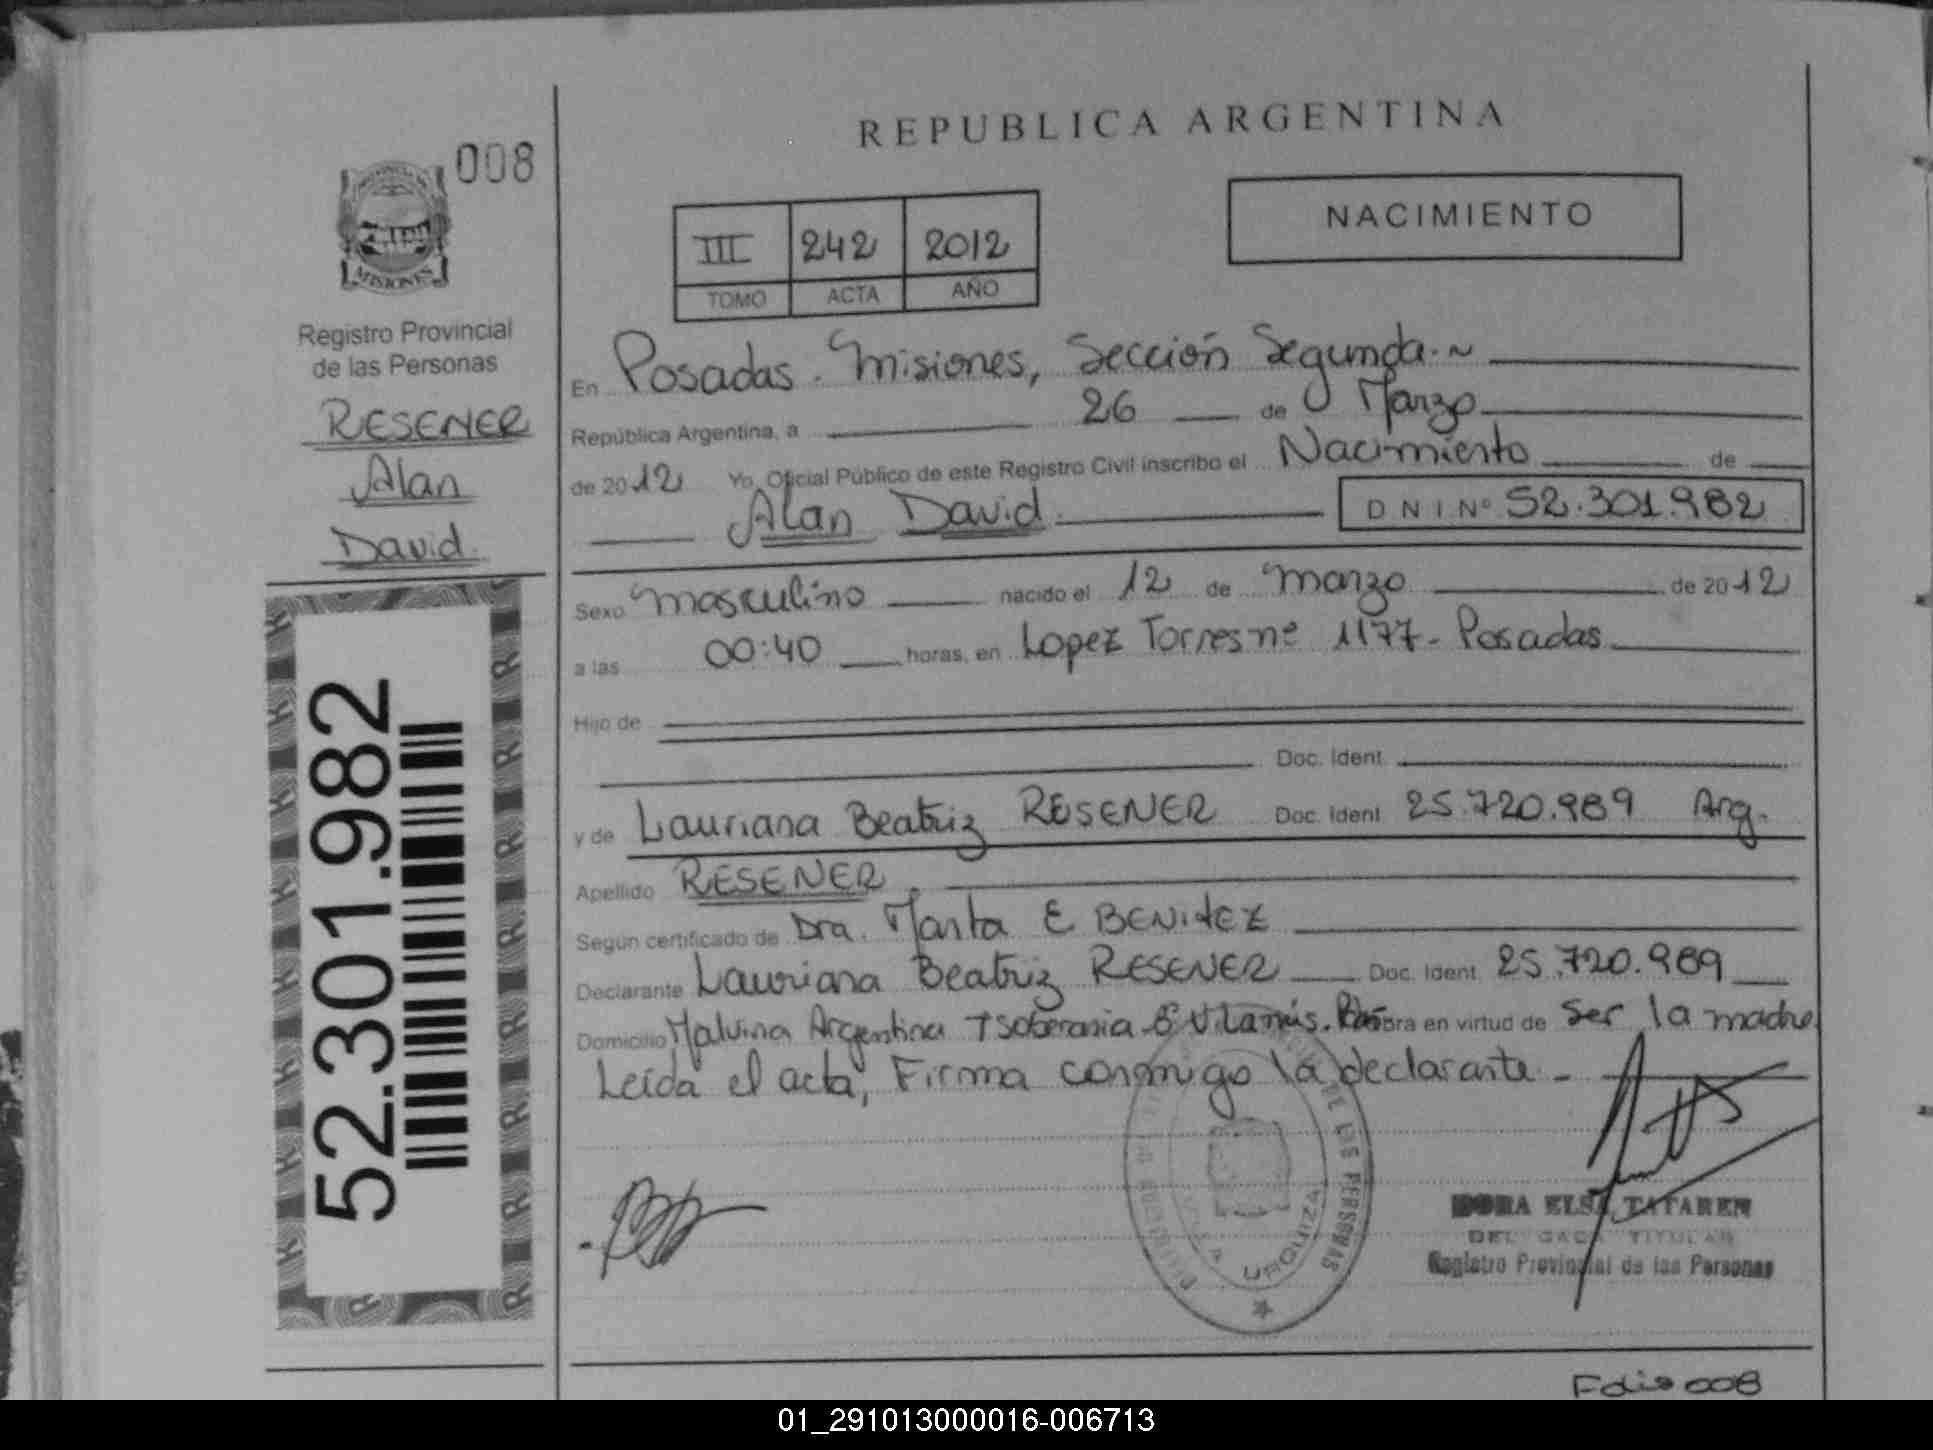 REPUBLICA ARGENTINA
008
MISIONES
Registro Provincial
de las Personas
RESENER
Alan
David
52.301.982
NACIMIENTO
III 242 2012
TOMO ACTA AÑO
En Posadas. Misiones, Sección Segunda.~
República Argentina, a 26 de Marzo
de 2012 Yo, Oficial Público de este Registro Civil inscribo el Nacimiento de
Alan David DNI Nº 52.301.982
Sexo Masculino nacido el 12 de Marzo de 2012
a las 00:40 horas, en Lopez Torres nº 1177 - Posadas
Hijo de
Doc. Ident.
y de Lauriana Beatriz RESENER Doc. Ident. 25.720.989 Arg.
Apellido RESENER
Según certificado de Dra. Marta E BENITEZ
Declarante Lauriana Beatriz RESENER Doc. Ident. 25.720.989
Domicilio Malvina Argentina Soberania en virtud de Ser la madre
Leída el acta, Firma conmigo la declarante -
DE LAS PERSONAS
URQUIZA
DORA ELSA TATAREN
TITULAR
Registro Provincial de las Personas
Folio 008
01_291013000016-006713